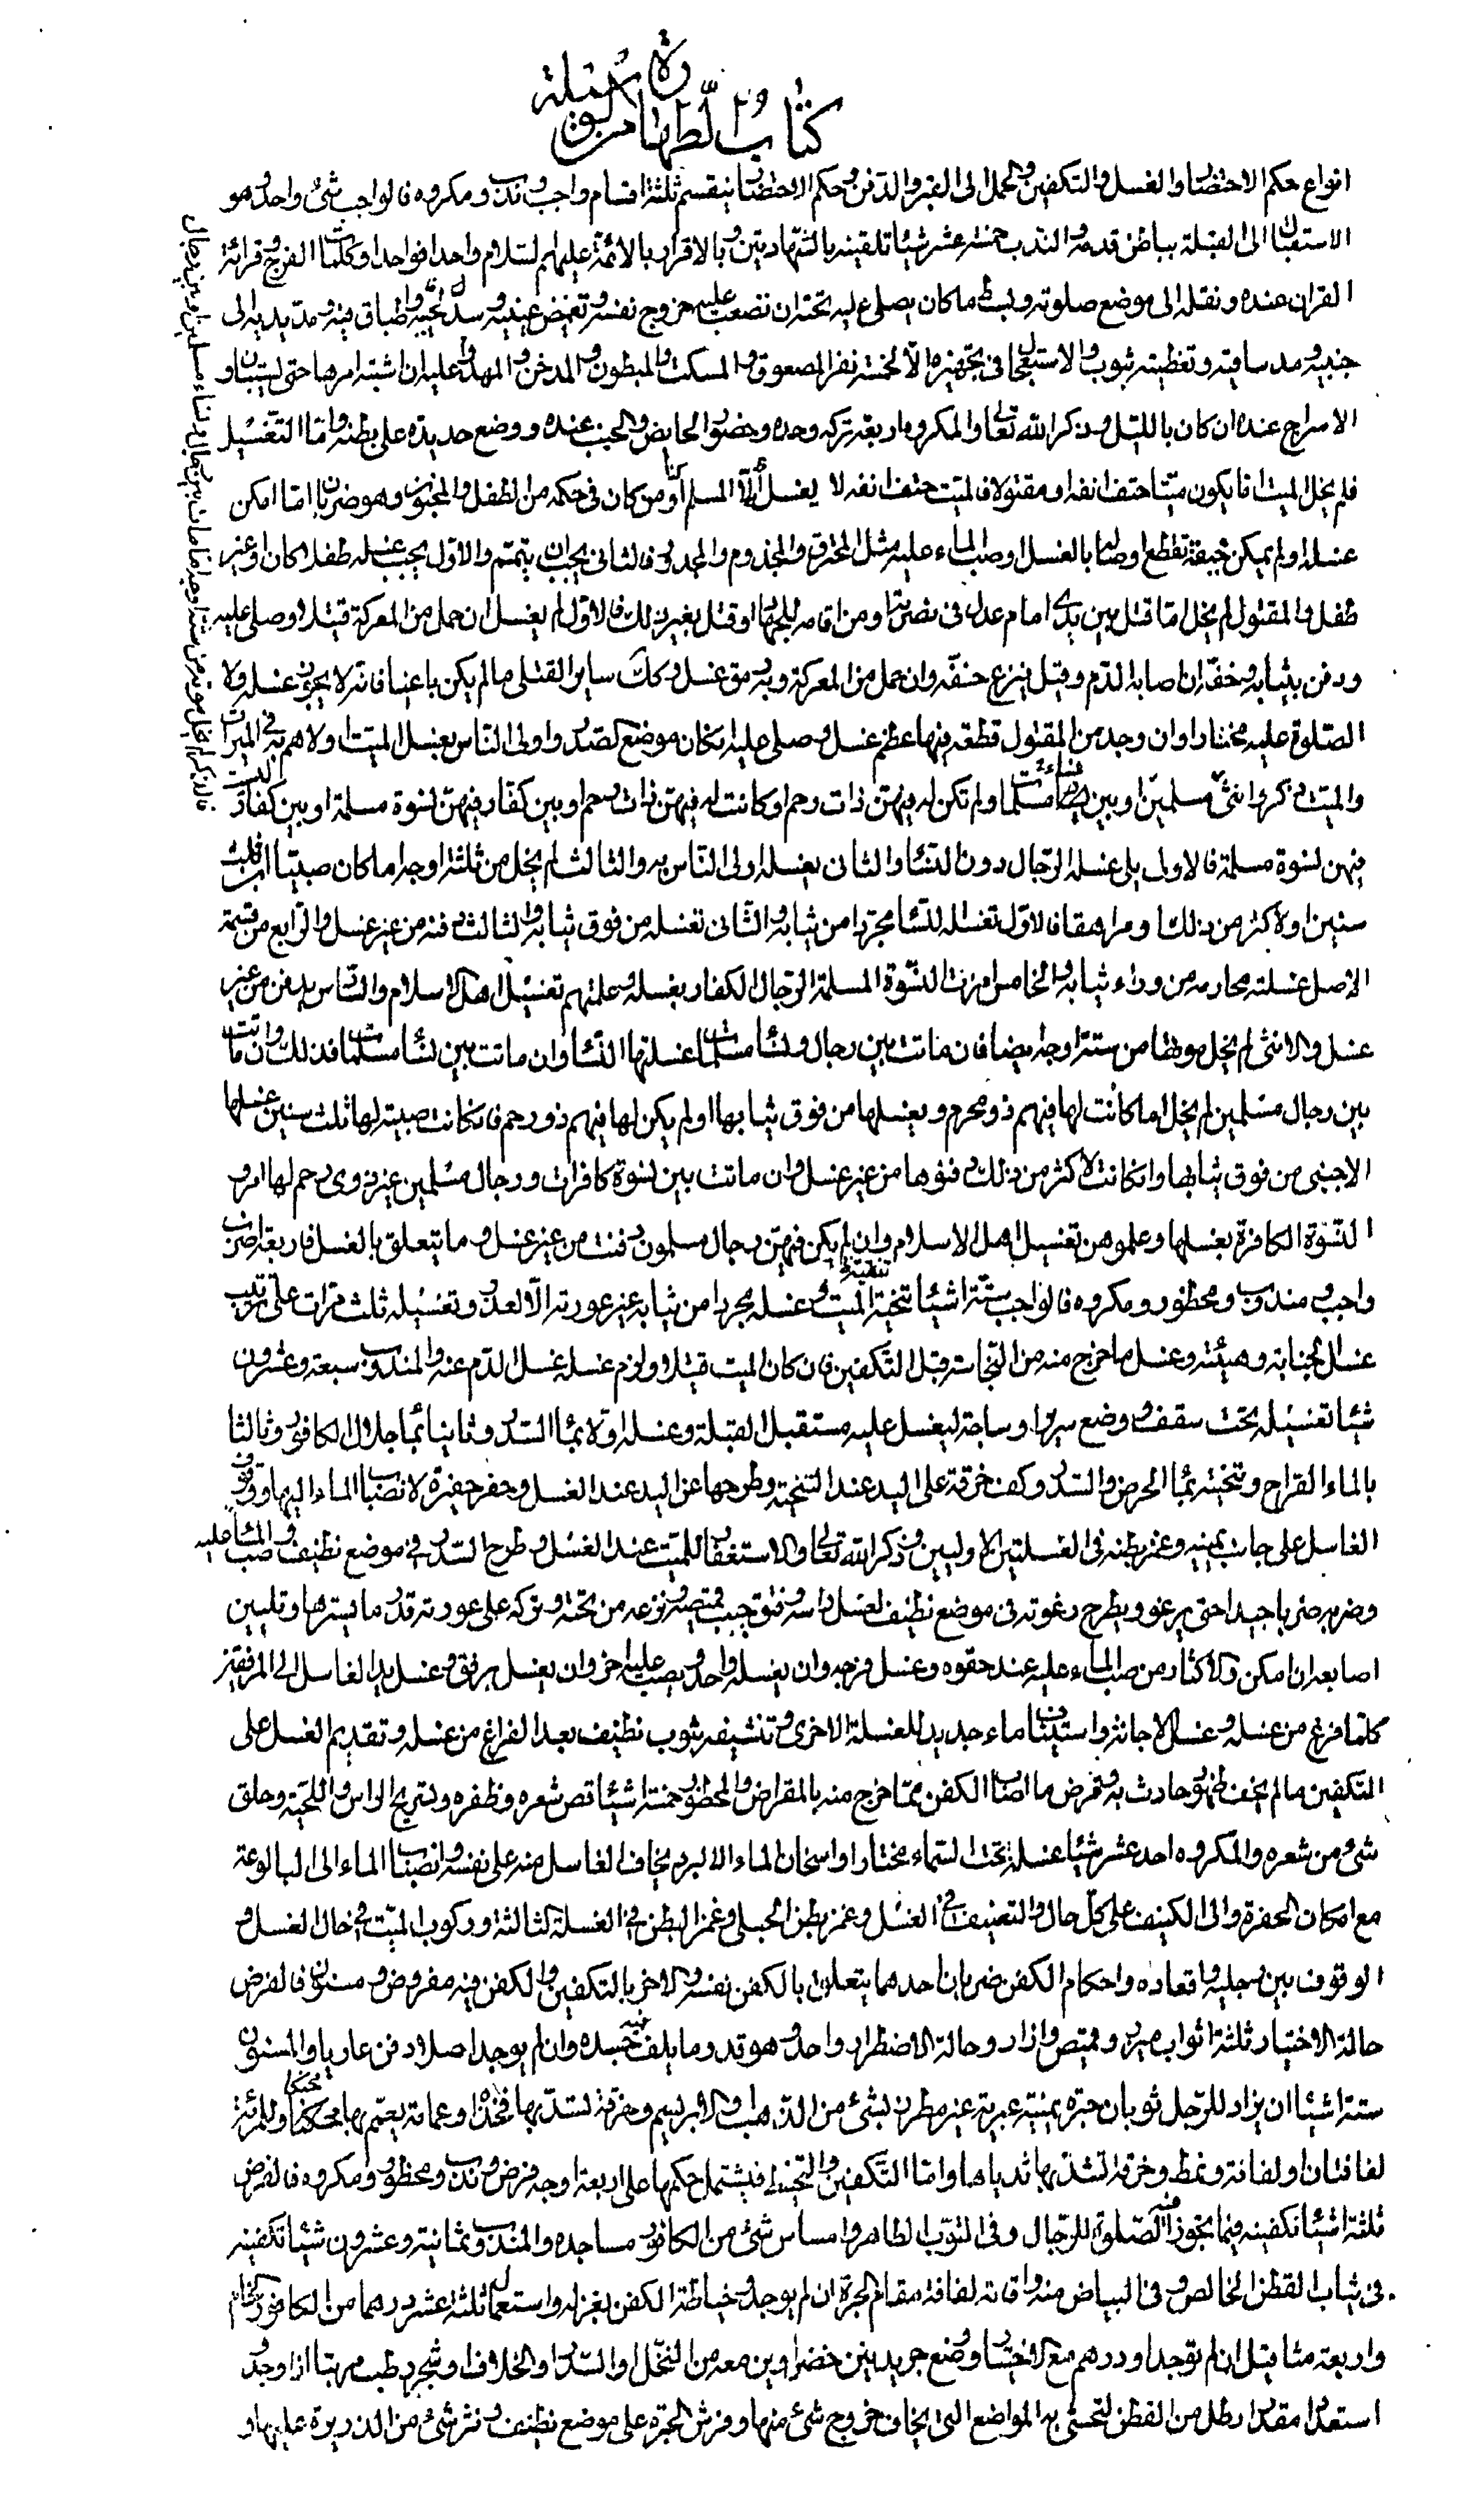 كتاب الطهارة من الوسيلة
انواع حكم الاحتضار والغسل والتكفين والحمل الى القبر والدفن وحكم الاحتضار ينقسم ثلثة اقسام واجب وندب ومكروه فالواجب شئ واحد وهو
الاستقبال به الى القبلة بباطن قدميه والندب خمسة عشر شيئا تلقينه بالشهادتين وبالاقرار بالائمة عليهم السلام واحدا فواحدا وكلمات الفرج وقرائة
القران عنده ونقله الى موضع صلوته وبسط ما كان يصلى عليه تحته ان تصعب عليه خروج نفسه وتغميض عينيه وسد لحييه واطباق فيه ومد يديه الى
جنبيه ومد ساقيه وتغطيته بثوب والاستعجال فى تجهيزه الا لخمسة نفر المصعوق والمسكت والمبطون والمدخن والمهدوم عليه ان اشتبه امرها حتى يستبان و
الاسراج عنده ان كان بالليل وذكر الله تعالى والمكروه اربعة تركه وحده وحضور الحايض والجنب عنده ووضع حديدة على بطنه واما التغسيل
فلم يخل الميت اما يكون ميتا حتف انفه او مقتولا فالميت حتف انفه لا يغسل الا المسلم او من كان فى حكمه من الطفل والمجنون وهو ضربان اما امكن
غسله او لم يمكن خيفة تقطع اوصاله بالغسل او صب الماء عليه مثل المحترق والمجذوم والمجدور فالثانى يجب ان يتمم والاول يجب غسله طفلا كان او غير
طفل والمقتول لم يخل اما قتل بين يدى امام عدل فى نصرته او من اقامه للجهاد او قتل بغير ذلك فالاول لم يغسل ان حمل من المعركة قتيلا وصلى عليه
ودفن بثيابه وخفه ان اصابه الدم وقيل ينزع خفه وان حمل من المعركة وبه رمق غسل وكذلك ساير القتلى ما لم يكن باغيا فانه لا يجوز غسله ولا
الصلوة عليه مختارا وان وجد من المقتول قطعة فيها عظم غسل وصلى عليه ان كان موضع الصدر واولى الناس بغسل الميت اولاهم به فى الميراث
والميت ذكر وانثى مسلمين او بين نساء مسلمات او لم تكن له فيهن ذات رحم او كانت له فيهن ذات رحم او بين كفار فيهن نسوة مسلمة او بين كفار ليست
فيهن نسوة مسلمة فالاولى يلى غسله الرجال دون النساء والثانى يغسله اولى الناس به والثالث لم يخل من ثلثة اوجه اما كان صبيا ابن ثلث
سنين او لاكثر من ذلك او مراهقا فالاول تغسله النساء مجردا من ثيابه والثانى تغسله من فوق ثيابه والثالث دفنه من غير غسل والرابع من قسمة
الاصل غسلته محارمه من وراء ثيابه والخامس امرت النسوة المسلمة الرجال الكفار بغسله وعلمتهم تغسيل اهل الاسلام والسادس يدفن من غير
غسل والانثى لم يخل موتها من ستة اوجه ايضا فان ماتت بين رجال ونساء مسلمات غسلتها النساء وان ماتت بين نساء مسلمات فكذلك وان ماتت
بين رجال مسلمين لم يخل اما كانت لها فيهم ذو محرم ويغسلها من فوق ثيابها او لم يكن لها فيهم ذو رحم فان كانت صبية لها ثلث سنين غسلها
الاجنبى من فوق ثيابها وان كانت لاكثر من ذلك دفنوها من غير غسل وان ماتت بين نسوة كافرات ورجال مسلمين غير ذوى رحم لها امروا
النسوة الكافرة بغسلها وعلموهن تغسيل اهل الاسلام وان لم يكن فيهن رجال مسلمون دفنت من غير غسل وما يتعلق بالغسل فاربعة اضرب
واجب ومندوب ومحظور ومكروه فالواجب ستة اشياء تنجية الميت وغسله مجردا من ثيابه غير عورته الا لعذر وتغسيله ثلث مرات على ترتيب
غسل الجنابة وهيئته وغسل ما خرج منه من النجاسة قبل التكفين فان كان الميت قتيلا ولزم غسله غسل الدم عنه والمندوب سبعة وعشرون
شيئا تغسيله تحت سقف ووضع سرير او ساجة ليغسل عليه مستقبل القبلة وغسله اولا بماء السدر وثانيا بماء جلال الكافور وثالثا
بالماء القراح وتنجيته بماء الحرض والسدر وكف خرقة على اليد عند التنجية وطرحها عن اليد عند الغسل وحفر حفيرة لانصباب الماء اليها ووقوف
الغاسل على جانب يمينه وغمز بطنه فى الغسلتين الاوليين وذكر الله تعالى والاستغفار للميت عند الغسل وطرح السدر فى موضع نظيف وصب الماء عليه
وضربه ضربا جيدا حتى يرغو ويطرح رغوته فى موضع نظيف لغسل راسه وفتق جيب قميصه ونزعه من تحته وتركه على عورته قدر ما يسترها وتليين
اصابعه ان امكن والاكثار من صب الماء عليه عند حقوه وغسل فرجه وان يغسله واحد ويصب عليه اخر وان يغسل برفق وغسل يد الغاسل الى المرفقين
كلما فرغ من غسله وغسل الاجانة واستيناف ماء جديد للغسلة الاخرى وتنشيفه بثوب نظيف بعد الفراغ من غسله وتقديم الغسل على
التكفين ما لم يخف ظهور حادث به وقرض ما اصاب الكفن مما خرج منه بالمقراض والمحظور خمسة اشياء قص شعره وظفره وتسريح الراس واللحية وحلق
شئ من شعره والمكروه احد عشر شيئا غسله تحت السماء مختارا واسخان الماء الا لبرد يخاف الغاسل منه على نفسه وانصباب الماء الى البالوعة
مع امكان الحفرة والى الكنيف على كل حال والتعنيف فى الغسل وغمز بطن الحبلى وغمز البطن فى الغسلة الثالثة وركوب الميت فى حال الغسل و
الوقوف بين رجليه واقعاده واحكام الكفن ضربان احدهما يتعلق بالكفن نفسه والاخر بالتكفين والكفن فيه مفروض ومسنون فالفرض
حالة الاختيار ثلثة اثواب ميزر وقميص وازار وحالة الاضطرار واحد وهو قدر ما يلف فيه جسده وان لم يوجد اصلا دفن عاريا والمسنون
ستة اشياء ان يزاد للرجل ثوبان حبرة يمنية عبرية غير مطرزة بشئ من الذهب والابريسم وخرقة تشد بها فخذاه وعمامة يعمم بها محنكا وللمرئة
لفافتان او لفافة ونمط وخرقة تشد بها ثدياها واما التكفين والتحنيط فيشتمل حكمها على اربعة اوجه فرض وندب ومحظور ومكروه فالفرض
ثلثة اشياء تكفينه فيما يجوز فيه الصلوة للرجال وفى الثوب الطاهر وامساس شئ من الكافور مساجده والمندوب ثمانية وعشرون شيئا تكفينه
فى ثياب القطن الخالص وفى البياض منه واقامة لفافة مقام الحبرة ان لم يوجد وخياطة الكفن بغزله واستعمال ثلثة عشر درهما من الكافور الخام
واربعة مثاقيل ان لم توجد او درهم مع الاختيار ووضع جريدتين خضراوين معه من النخل او السدر او الخلاف او شجر رطب مرتبا اذا وجد و
استعداد مقدار رطل من القطن لتحشى به المواضع التى يخاف خروج شئ منها وفرش الحبرة على موضع نظيف ونثر شئ من الذريرة عليها و